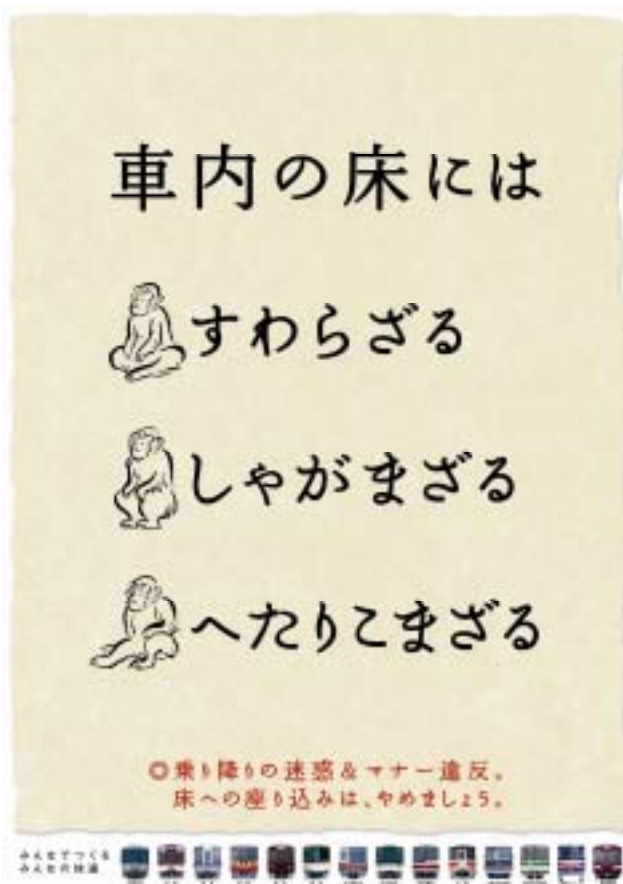 車内の床には
すわらざる
しゃがまざる
へたりこまざる
◎乗り降りの迷惑&マナー違反。
床への座り込みは、やめましょう。
みんなでつくる